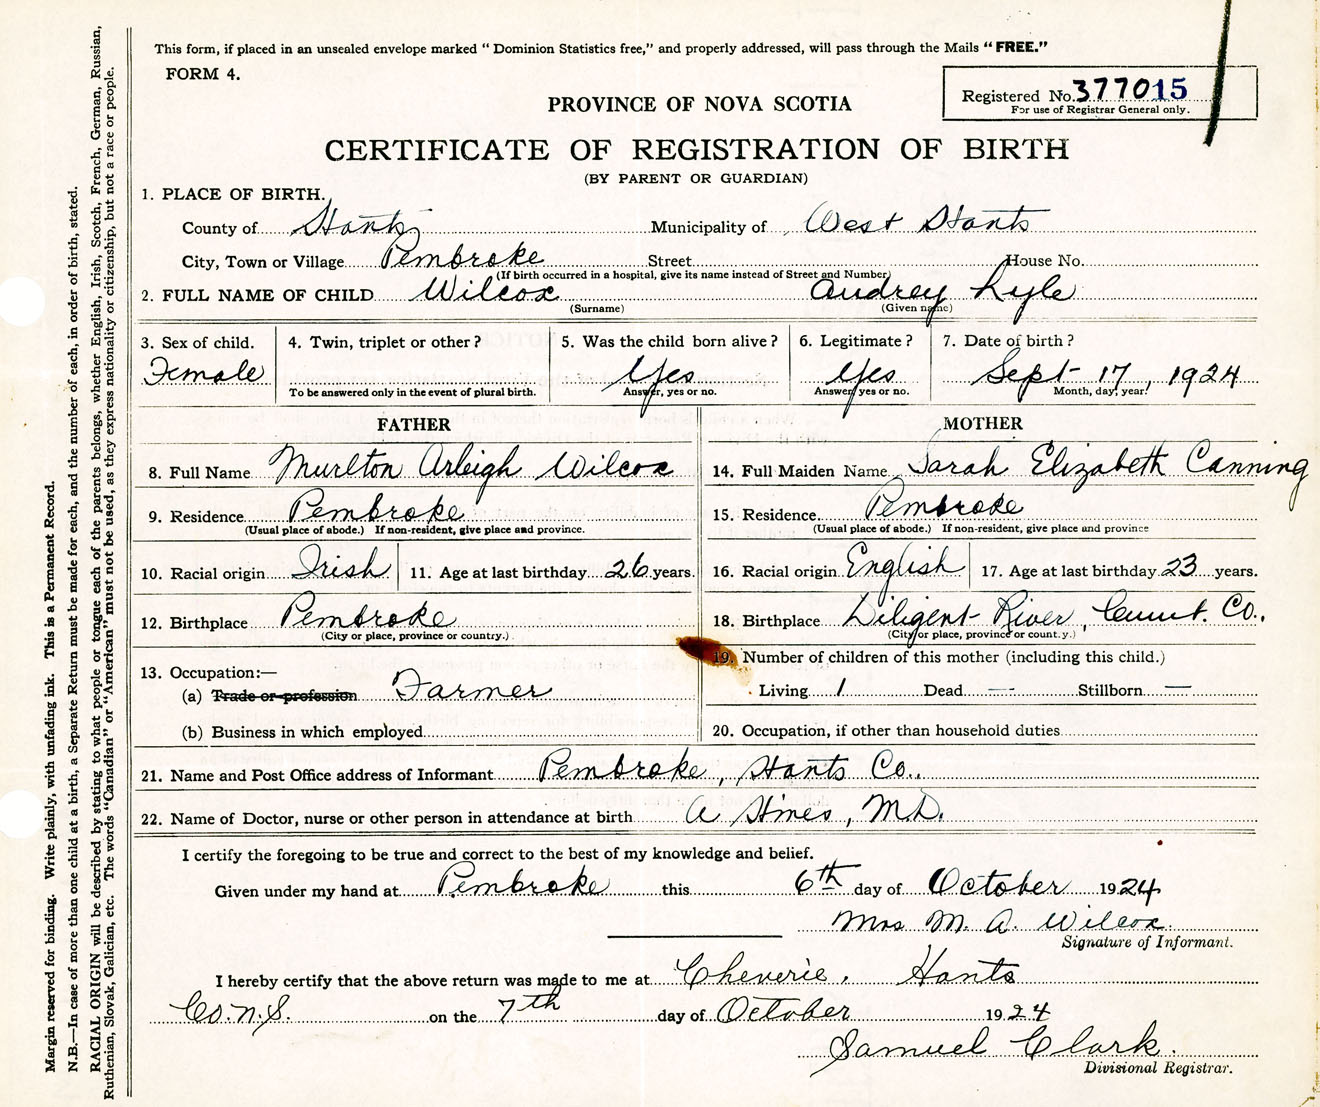 This form, if placed in an unsealed envelope marked "Dominion Statistics free," and properly addressed, will pass through the Mails "FREE."
FORM 4.
Registered No. 377015
For use of Registrar General only.
PROVINCE OF NOVA SCOTIA
CERTIFICATE OF REGISTRATION OF BIRTH
(BY PARENT OR GUARDIAN)
1. PLACE OF BIRTH.
County of Hants Municipality of West Hants
City, Town or Village Pembroke Street House No.
(If birth occurred in a hospital, give its name instead of Street and Number)
2. FULL NAME OF CHILD Wilcox Audrey Lyle
(Surname) (Given name)
3. Sex of child. 4. Twin, triplet or other? 5. Was the child born alive? 6. Legitimate? 7. Date of birth?
Female Yes Yes Sept 17, 1924
To be answered only in the event of plural birth. Answer, yes or no. Answer, yes or no. Month, day, year.
FATHER MOTHER
8. Full Name Murlton Arleigh Wilcox 14. Full Maiden Name Sarah Elizabeth Canning
9. Residence Pembroke 15. Residence Pembroke
(Usual place of abode.) If non-resident, give place and province. (Usual place of abode.) If non-resident, give place and province
10. Racial origin Irish 11. Age at last birthday 26 years. 16. Racial origin English 17. Age at last birthday 23 years.
12. Birthplace Pembroke 18. Birthplace Diligent River, Cumt. Co.,
(City or place, province or country.) (City or place, province or count.y.)
13. Occupation:— 19. Number of children of this mother (including this child.)
(a) Trade or profession Farmer Living 1 Dead — Stillborn —
(b) Business in which employed 20. Occupation, if other than household duties
21. Name and Post Office address of Informant Pembroke, Hants Co.
22. Name of Doctor, nurse or other person in attendance at birth A Hines, M.D.
I certify the foregoing to be true and correct to the best of my knowledge and belief.
Given under my hand at Pembroke this 6th day of October 1924
Mrs M. A. Wilcox
Signature of Informant.
I hereby certify that the above return was made to me at Cheverie, Hants
Co. N.S. on the 7th day of October 1924
Samuel Clark.
Divisional Registrar.
Margin reserved for binding. Write plainly, with unfading ink. This is a Permanent Record.
N.B.—In case of more than one child at a birth, a Separate Return must be made for each, and the number of each, in order of birth, stated.
RACIAL ORIGIN will be described by stating to what people or tongue each of the parents belongs, whether English, Irish, Scotch, French, German, Russian,
Ruthenian, Slovak, Galician, etc. The words "Canadian" or "American" must not be used, as they express nationality or citizenship, but not a race or people.